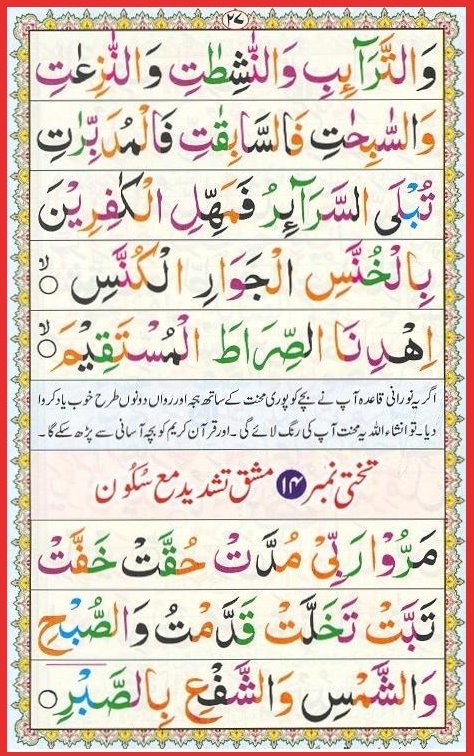 ۲۷
وَالتَّرَآئِبِ وَالنّٰشِطٰتِ وَالنّٰزِعٰتِ
وَالسّٰبِحٰتِ فَالسَّابِقٰتِ فَالْمُدَبِّرٰتِ
تُبْلَى السَّرَآئِرُ فَمَهِّلِ الْكٰفِرِيْنَ
بِالْخُنَّسِ الْجَوَارِ الْكُنَّسِ ۙ○
اِهْدِنَا الصِّرَاطَ الْمُسْتَقِيْمَ ۙ○
اگر یہ نورانی قاعدہ آپ نے بچے کو پوری محنت کے ساتھ ہجہ اور رواں دونوں طرح خوب یاد کروا
دیا۔ تو انشاء اللہ یہ محنت آپ کی رنگ لائے گی۔ اور قرآن کریم کو بچہ آسانی سے پڑھ سکے گا۔
تختی نمبر ۱۴ مشق تشدید مع سُکُون
مَرُّوْا رَبِّيْ مُدَّتْ حُقَّتْ خَفَّتْ
تَبَّتْ تَخَلَّتْ قَدَّمْتُ وَالصُّبْحِ
وَالشَّمْسِ وَالشَّفْعِ بِالصَّبْرِ ○